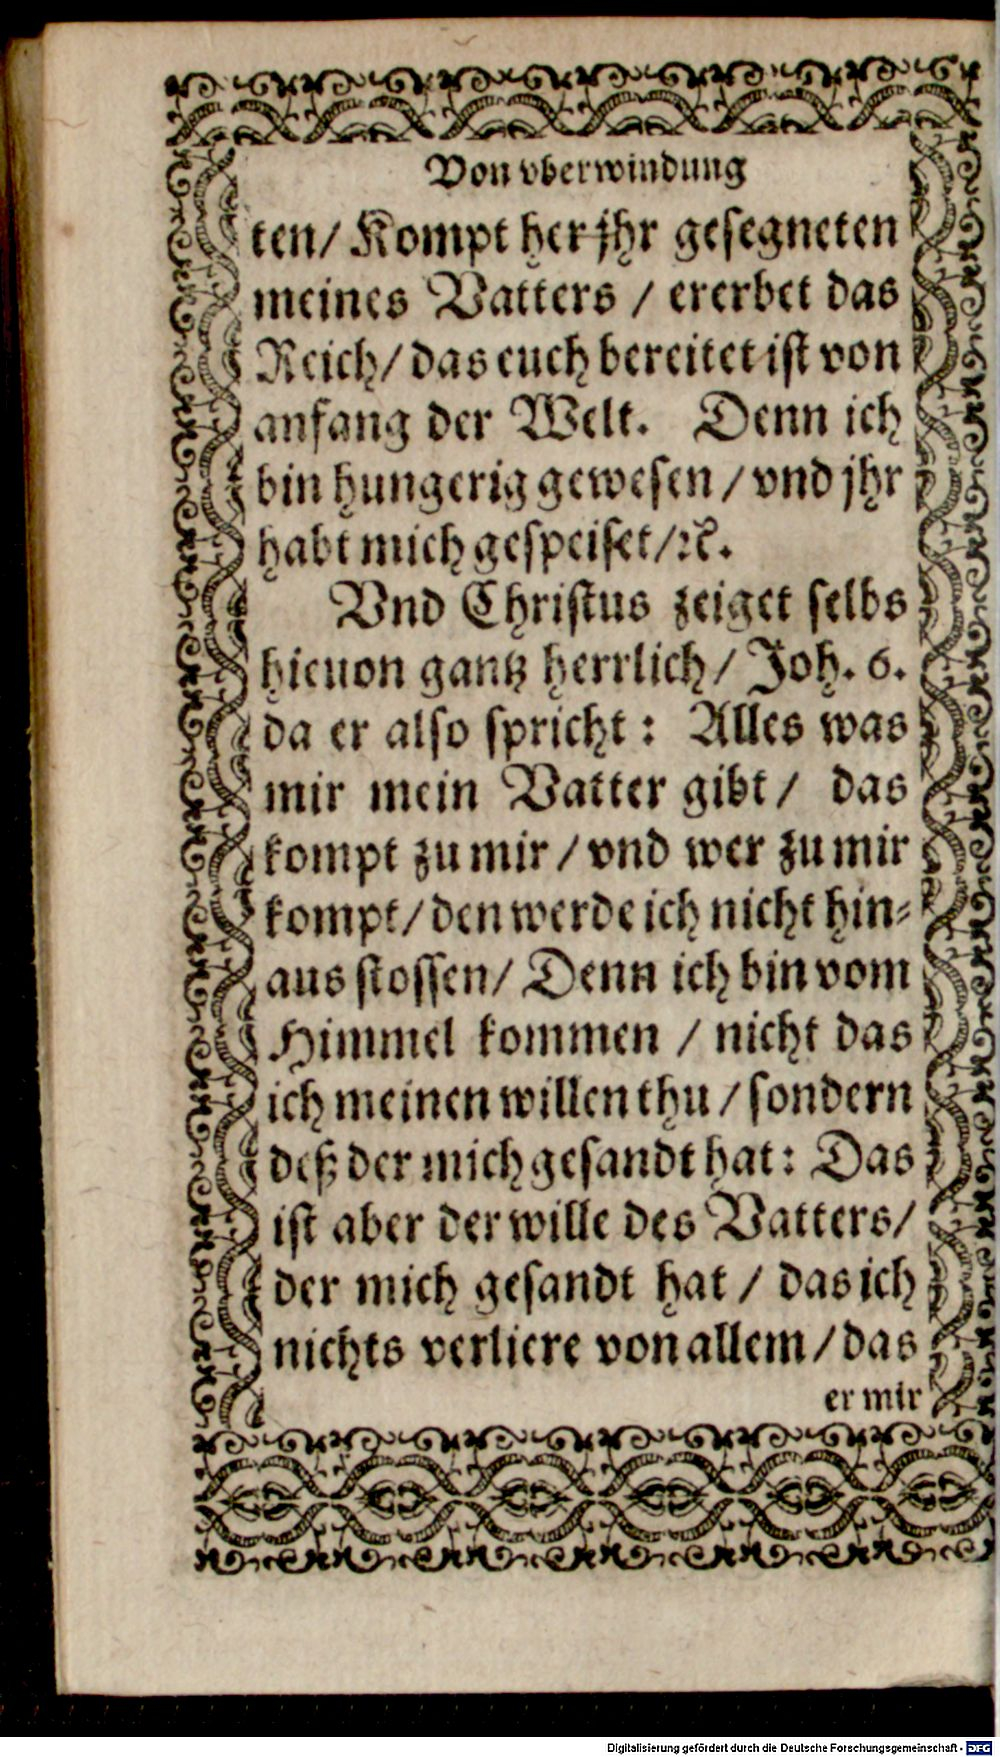 Von vberwindung
ten/ Kompt her jhr gesegneten
meines Vatters / ererbet das
Reich/ das euch bereitet ist von
anfang der Welt. Denn ich
bin hungerig gewesen / vnd jhr
habt mich gespeiset/ꝛc.
Vnd Christus zeiget selbs
hieuon gantz herrlich/ Joh. 6.
da er also spricht: Alles was
mir mein Vatter gibt/ das
kompt zu mir / vnd wer zu mir
kompt/ den werde ich nicht hin-
aus stossen/ Denn ich bin vom
Himmel kommen / nicht das
ich meinen willen thu / sondern
deß der mich gesandt hat: Das
ist aber der wille des Vatters/
der mich gesandt hat / das ich
nichts verliere von allem / das
er mir
Digitalisierung gefördert durch die Deutsche Forschungsgemeinschaft - DFG